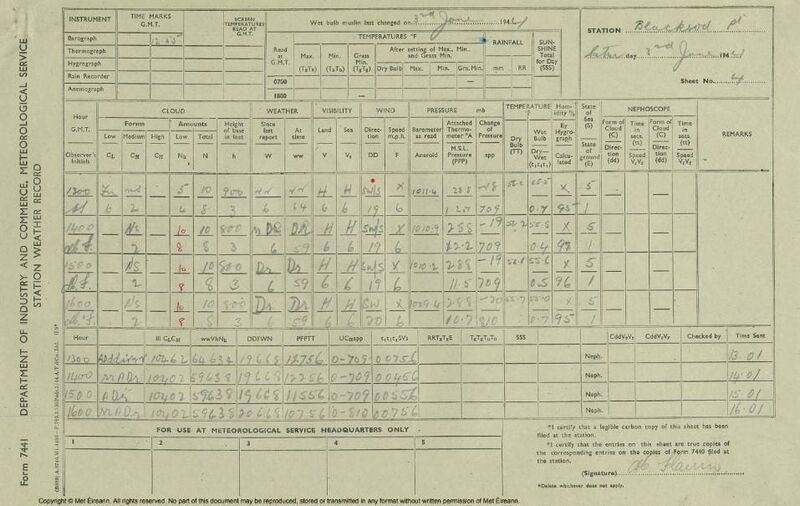 DEPARTMENT OF INDUSTRY AND COMMERCE, METEOROLOGICAL SERVICE
STATION WEATHER RECORD
Form 7441
INSTRUMENT
TIME MARKS G.M.T.
SCREEN TEMPERATURES READ AT G.M.T.
Barograph
Thermograph
Hygrograph
Rain Recorder
Anemograph
Wet bulb muslin last changed on 3rd June 1944
TEMPERATURES °F
RAINFALL
SUNSHINE Total for Day (SSS)
Read at G.M.T.
Max. (TxTx)
Min.
Grass Min.
After setting of Max., Min. and Grass Min.
Dry Bulb
Max.
Min.
Grs. Min.
mm
RR
0700
1800
STATION Blacksod Pt
Saturday 3rd June 1944
Sheet No. 4
Hour G.M.T.
Observer's Initials
CLOUD
Forms
Low
Medium
High
Amounts
Low
Total
Height of base in feet
Nh
N
h
WEATHER
Since last report
At time
W
ww
VISIBILITY
Land
Sea
V
Vs
WIND
Direction
Speed m.p.h.
DD
F
PRESSURE mb
Barometer as read
Aneroid
Attached Thermometer °A
M.S.L. Pressure (PPP)
Change of Pressure
app
TEMPERATURE °F
Dry Bulb (TT)
Wet Bulb
Dry–Wet
Humidity %
By Hygrograph
Calculated
State of Sea (S)
State of ground (E)
NEPHOSCOPE
Form of Cloud (C)
Direction (dd)
Time in secs. (tt)
Speed
Form of Cloud (C)
Direction (dd)
Time in secs. (tt)
Speed
REMARKS
1300 5 10 900 H H SW/S X 1011.4 288 -18 X 5
6 2 4 8 3 6 64 6 6 19 6 709 0.7 95 1
1400 Ns 10 10 800 DR H H SW/S X 1010.9 288 -19 X 5
2 8 8 3 6 59 6 6 19 6 12.2 709 0.4 98 1
1500 NS 10 10 800 Dr Dr H H SW/S X 1010.2 288 -19 X 5
2 8 8 3 6 59 6 6 19 6 11.5 709 0.5 96 1
1600 Ns 10 10 800 Dr Dr H H SW X 1009.4 288 -20 X 5
2 8 8 3 6 59 6 6 20 6 10.7 810 0.7 95 1
Hour
III CLCM
wwVhNh
DDFWN
PPPTT
UCapp
RRTxTxE
SSS
Checked by
Time Sent
1300 10462 64634 19668 12756 0-709 00756 Neph. 13.01
1400 10402 59638 19668 12256 0-709 00456 Neph. 14.01
1500 10402 59638 19668 11556 0-709 00556 Neph. 15.01
1600 10402 59638 20668 10756 0-810 00756 Neph. 16.01
FOR USE AT METEOROLOGICAL SERVICE HEADQUARTERS ONLY
1 2 3 4 5
*I certify that a legible carbon copy of this sheet has been filed at the station.
*I certify that the entries on this sheet are true copies of the corresponding entries on the copies of Form 7440 filed at the station.
(Signature)
*Delete whichever does not apply.
Copyright © Met Éireann. All rights reserved. No part of this document may be reproduced, stored or transmitted in any format without written permission of Met Éireann.